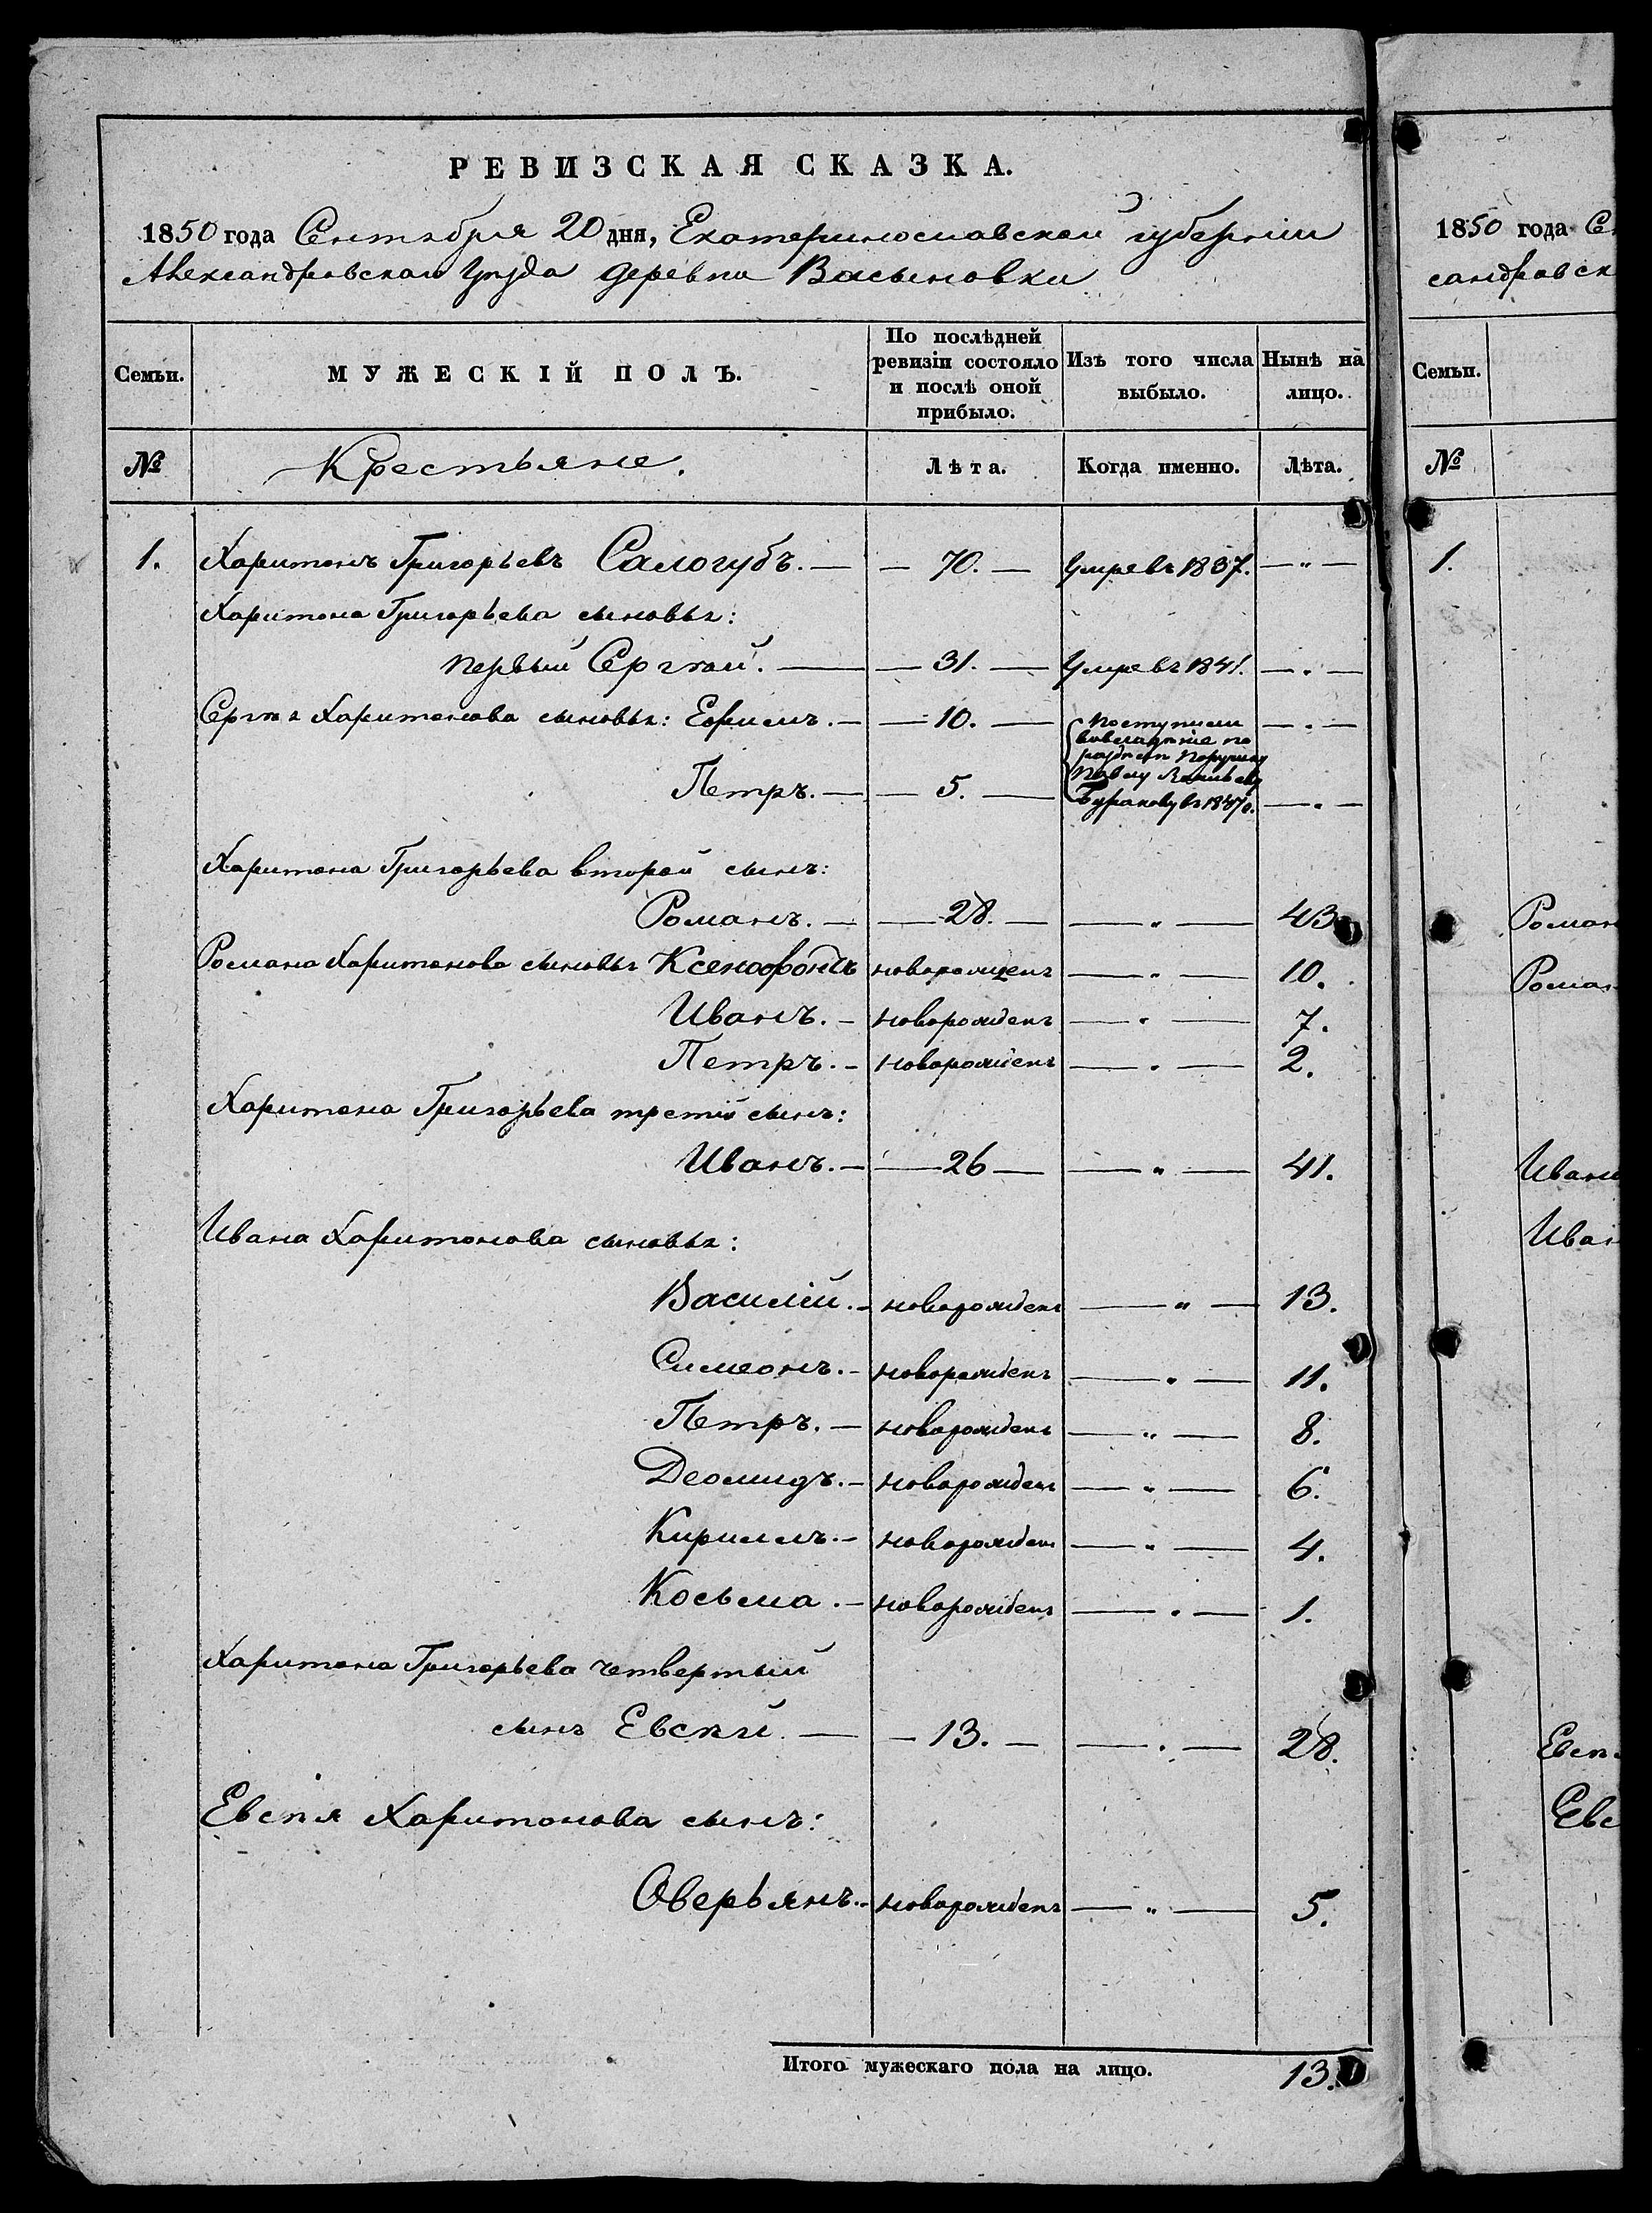 РЕВИЗСКАЯ СКАЗКА.
1850 года Сентября 20 дня, Екатеринославской губерніи
Александровскаго Уѣзда деревни Васьиновки
Семьи. МУЖЕСКІЙ ПОЛЪ. По послѣдней ревизіи состояло и послѣ оной прибыло. Изъ того числа выбыло. Нынѣ на лицо.
№ Крестьяне. Лѣта. Когда именно. Лѣта.
1. Харитонъ Григорьевъ Салогубъ. — — 70. — Умре въ 1837. — " —
Харитона Григорьева сыновья:
первый Сергѣй. — — 31. — Умре въ 1841. — " —
Сергѣя Харитонова сыновья: Ефимъ. — — 10. — — " —
Поступили
во владѣніе по
раздѣлу Поручику
Павлу
Петръ. — — 5. — Буракову въ 1847 г. — " —
Харитона Григорьева второй сынъ:
Романъ. — — 28. — — " — 43
Романа Харитонова сыновья Ксенофонтъ новорожденъ — " — 10.
Иванъ. — новорожденъ — " — 7.
Петръ. — новорожденъ — " — 2.
Харитона Григорьева третій сынъ:
Иванъ. — — 26 — — " — 41.
Ивана Харитонова сыновья:
Василій. — новорожденъ — " — 13.
Симеонъ. — новорожденъ — " — 11.
Петръ. — новорожденъ — " — 8.
Деомидъ. — новорожденъ — " — 6.
Кириллъ. — новорожденъ — " — 4.
Косьма. — новорожденъ — " — 1.
Харитона Григорьева четвертый
сынъ Евсѣй. — — 13. — — " — 28.
Евсѣя Харитонова сынъ:
Оверьянъ. — новорожденъ — " — 5.
Итого мужескаго пола на лицо. 13.
1850 года Се
сандровск
Семьи.
№
1.
Роман
Роман
Иван
Иван
Евсѣ
Евс